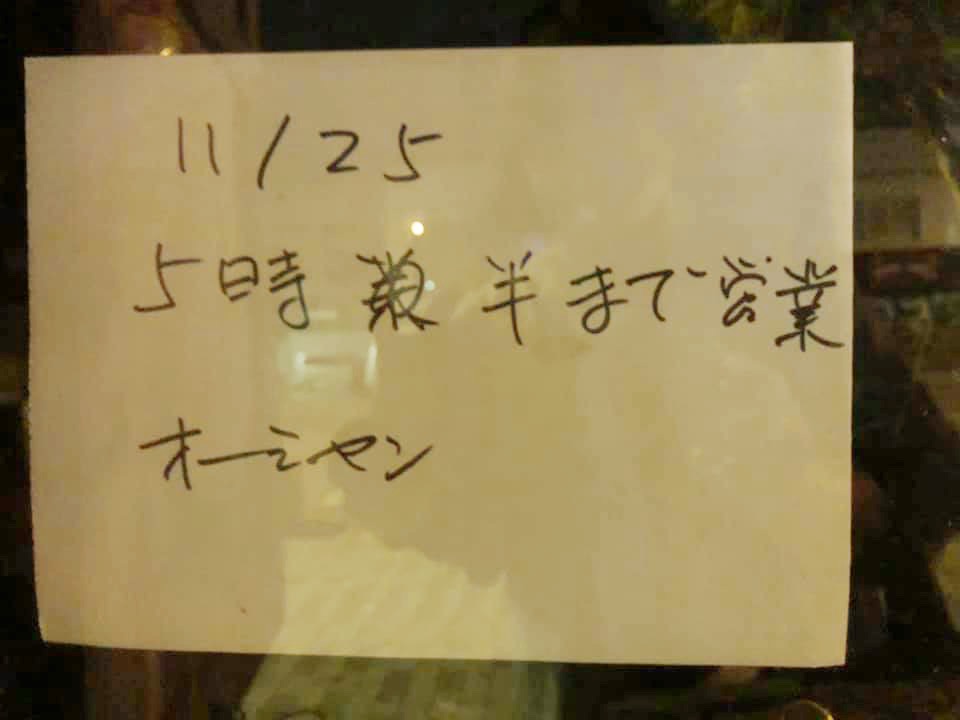 11/25
5時半まで営業
オーシャン